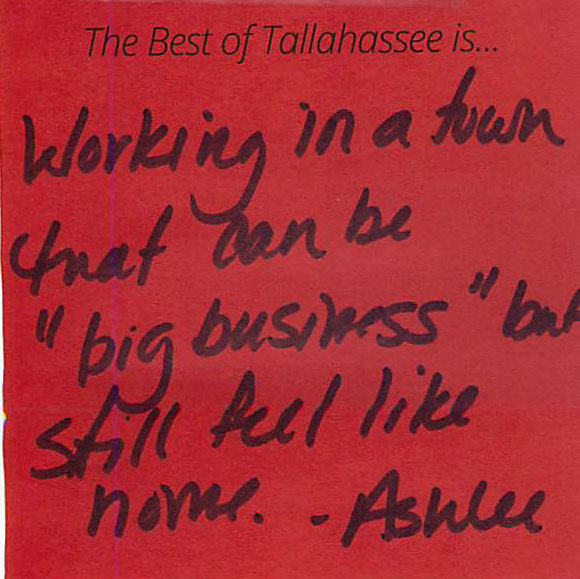 The Best of Tallahassee is...
Working in a town
that can be
"big business" but
still feel like
home. - Ashlee